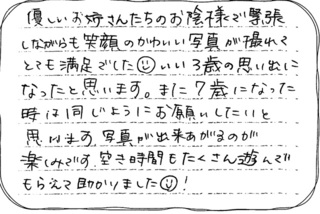 優しいお姉さんたちのお陰様で緊張
しながらも笑顔のかわいい写真が撮れて
とても満足でした☺いい3歳の思い出に
なったと思います。また7歳になった
時は同じようにお願いしたいと
思います。写真が出来あがるのが
楽しみです。空き時間もたくさん遊んで
もらえて助かりました☺!